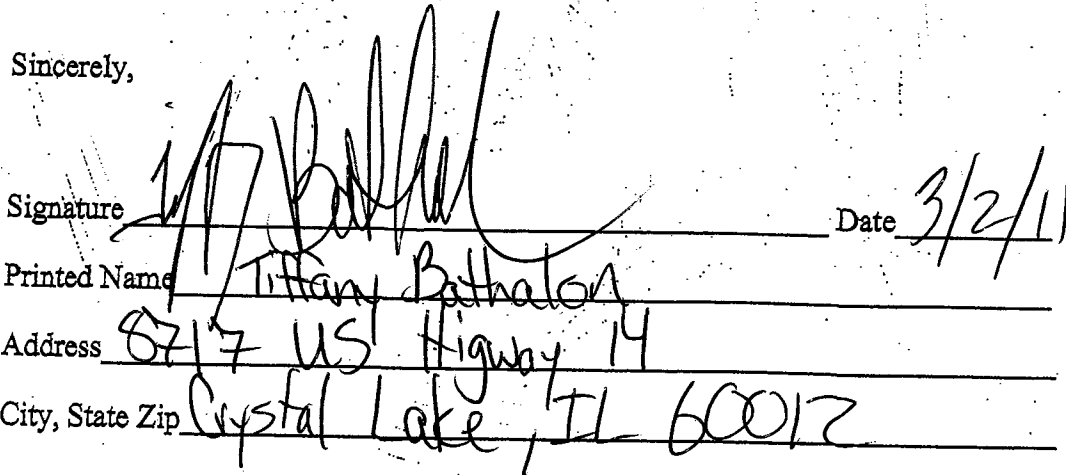 Sincerely,
Signature Date 3/2/11
Printed Name Tiffany Bathalon
Address 8717 US Higway 14
City, State Zip Crystal Lake, IL 60012